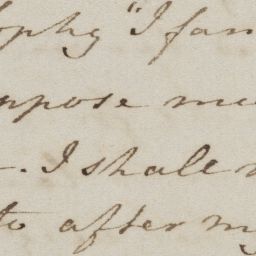 ophy "I fan
ppose mu
. I shall
to after my